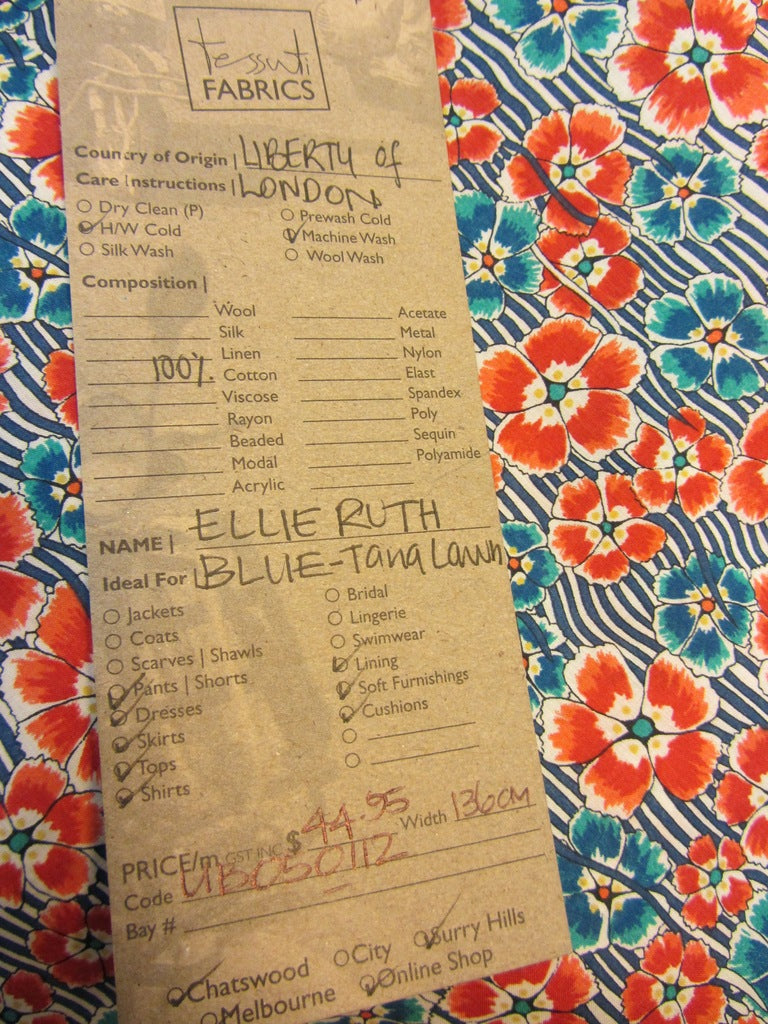 tessuti
FABRICS
Country of Origin | LIBERTY of
Care Instructions | LONDON
Dry Clean (P)
H/W Cold
Silk Wash
Prewash Cold
Machine Wash
Wool Wash
Composition |
Wool
Silk
Linen
100% Cotton
Viscose
Rayon
Beaded
Modal
Acrylic
Acetate
Metal
Nylon
Elast
Spandex
Poly
Sequin
Polyamide
NAME | ELLIE RUTH
Ideal For | BLUE-Tana Lawn
Jackets
Coats
Scarves | Shawls
Pants | Shorts
Dresses
Skirts
Tops
Shirts
Bridal
Lingerie
Swimwear
Lining
Soft Furnishings
Cushions
PRICE/m GST INC $ 44.95 Width 136cm
Code UB050112
Bay #
Chatswood City Surry Hills
Melbourne Online Shop